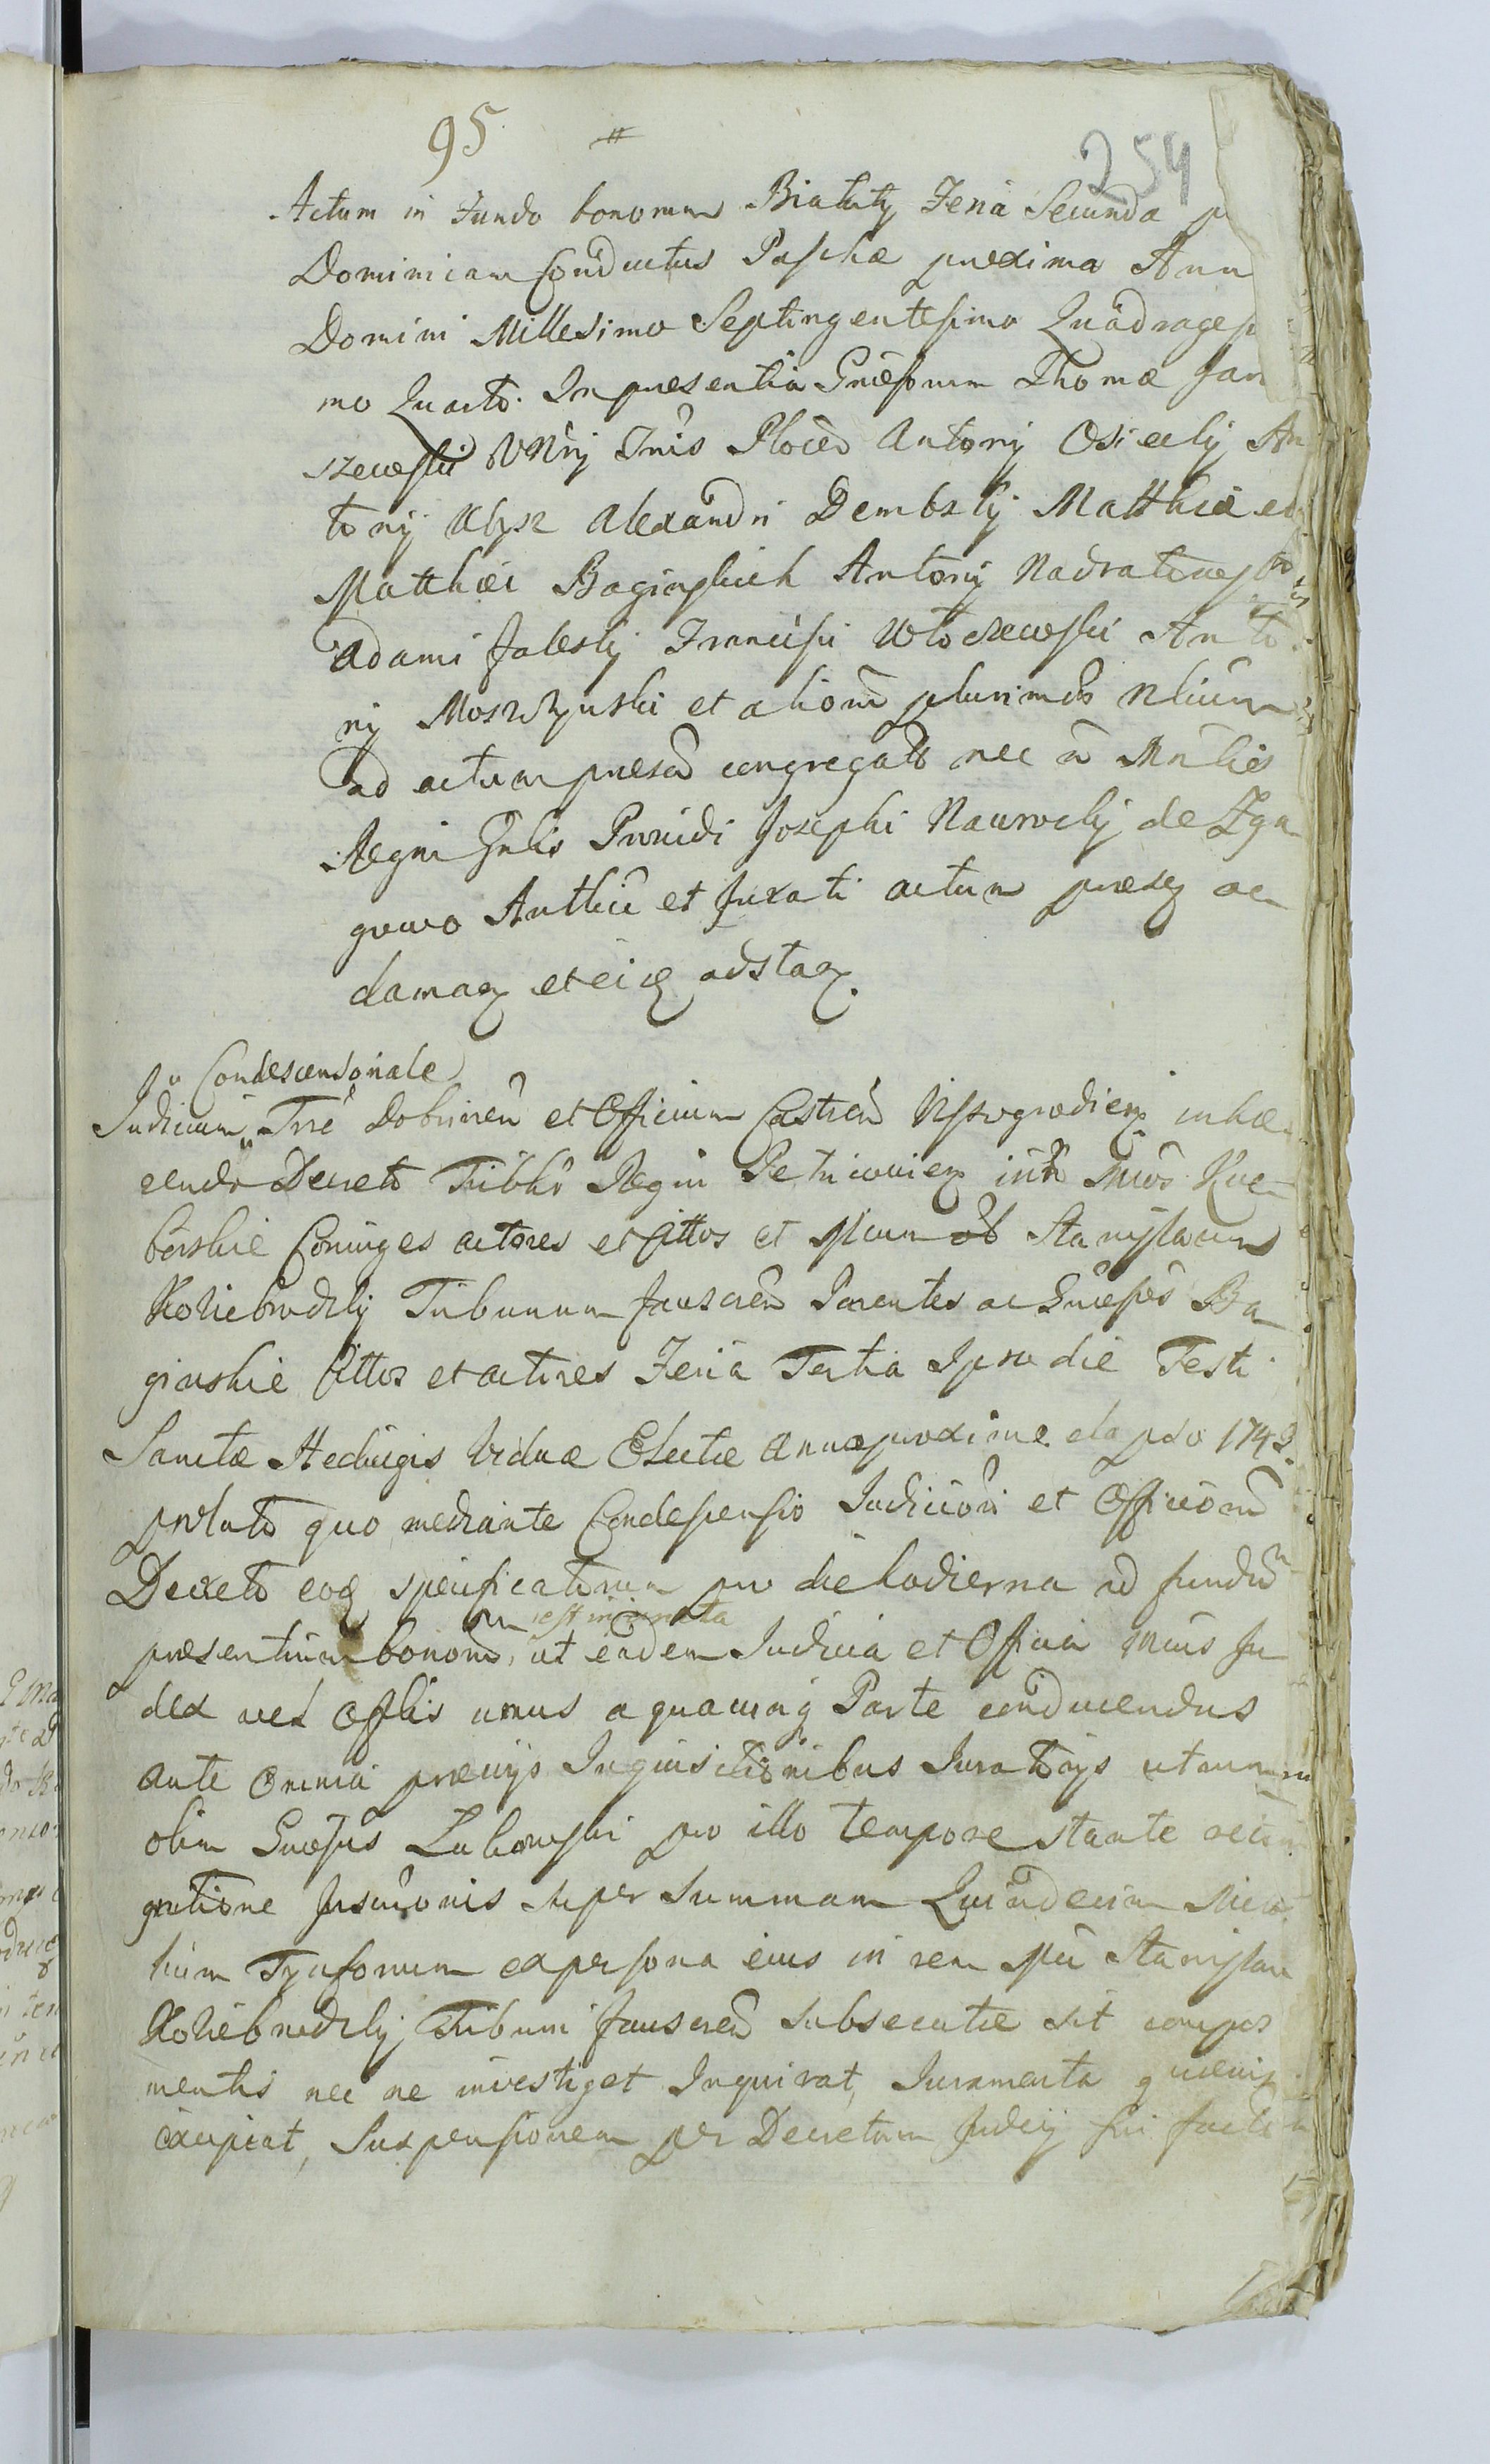 95 #
254
Actum in Fundo bonorum Białuty Feria Secunda p
Dominicam Conductus Paschæ proxima Ann
Domini Millesimo Septingentesimo Quadragesi
mo Quarto. In præsentia Gnẽsorum Thomæ Jan
szewski Trñs Plocẽn Antonij Osiecky An
tonij Alexandri Dembsky Matthiæ et
Matthæi Baginskich Antonij Nadratowski
Adami Jalesky Francisci Włoczewski Anto
nij Moszczynski et aliorũ plurimor̃ Nbilium
ad actum præsen̄ congregator̃ nec ñ Mnlis
Regni Gñlis Providi Josephi Nawrocky de Zga
gowo Authẽci et Jurati actum præseq̃ ac
clamaq̃ et eiq̃ adstaq̃.
Condescensoriale
Judicium Trrẽ Dobrinẽn et Officium Castren̄ Wyszogrodieq̃ inhæ
rendo Decreto Tribĩlr̃ Regni Petricovieq̃ intr̃ Mños Kue
borskie Coniuges actores et Cittos et Mĩcum ob Stanislaum
Koziebrodzky Tribunum Jauscen̄ Parentes ac Gnẽsos Ba
ginskie Cittos et actores Feria Tertia Ipso die Festi
Sanctæ Hedvigis Viduæ Electæ Anno proxime elapso 1743.
prolato quo mediante Condescensio Judicior̃ et Officiorũ
Decreto eoq̃ specificatorum pro die hodierna ad fundũ
præsentium bonorũ, est iniuncta ut eadem Judicia et Officia unus Ju
dex vel Offlis unus a quacunq̃ Parte conducendus
ante omnia prævijs Inquisitionibus Juratorijs utrum
olim Gnẽsus Lubowski pro illo tempore stante
gnitione Inscr̃onis super Summam Quindecim Mil
lium Tynfonum ex persona eius in rem Mĩci Stanislai
Koziebrodzky Tribuni Jauscen̄ subsecutæ sit compos
mentis nec ne investiget Inquirat, Juramenta
excipiat, Suspensionem per Decretum Judicij sui